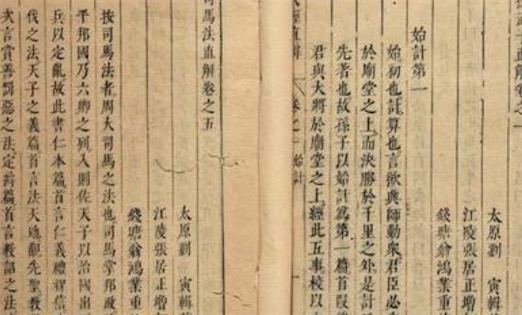 太原劉 寅輯
江陵張居正增
錢塘翁鴻業重
始計第一
始初也計算也言欲興師動衆君臣必
於廟堂之上而決勝於千里之外是計
先者也故孫子以始計爲第一篇首叚
君與大將於廟堂之上經此五事校以
直解 卷之一 始計
司馬法直解卷之五
太原劉 寅輯
江陵張居正增
錢塘翁鴻業重
按司馬法者周大司馬之法也司馬掌邦政
平邦國乃六卿之列入則佐天子以治國出
兵以定亂故此書仁本篇首言仁義禮智信
伐之法天子之義篇首言法天地觀先聖教
次言賞善罰惡之法定爵篇首言教詔之法